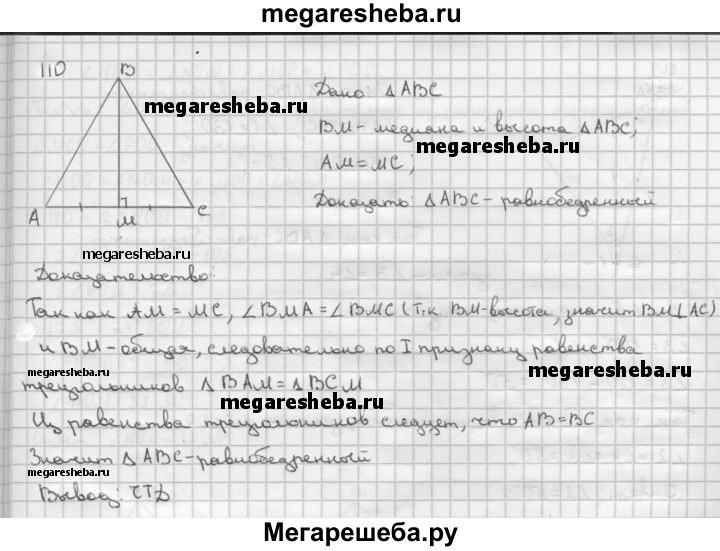 megaresheba.ru
110
B
Дано: △ABC
megaresheba.ru
BM - медиана и высота △ABC;
megaresheba.ru
AM = MC;
A M C
Доказать: △ABC - равнобедренный
megaresheba.ru
Доказательство:
Так как AM = MC, ∠BMA = ∠BMC (т.к BM-высота, значит BM⊥AC)
megaresheba.ru
и BM - общая, следовательно по I признаку равенства
megaresheba.ru
треугольников △BAM = △BCM
megaresheba.ru
Из равенства треугольников следует, что AB = BC
Значит △ABC - равнобедренный
megaresheba.ru
Вывод: ЧТД
Мегарешеба.ру